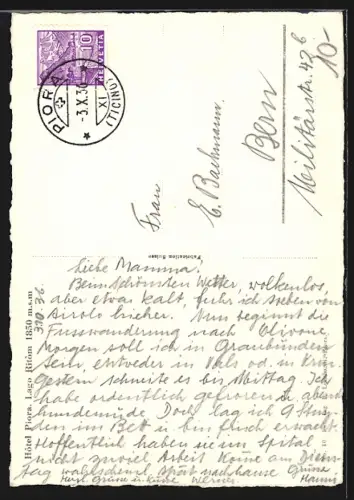 10
HELVETIA
PIORA
-3.X.36
XI
(TICINO)
10-
Frau
E. Bachmann.
Bern
Militärstr. 42 b
Fabrication Suisse
Hôtel Piora, Lago Ritom 1850 m.s.m
3.10.36
Liebe Mamma.
Beim schönsten Wetter, wolkenlos,
aber etwas kalt, fuhr ich soeben von
Airolo hieher. Nun beginnt die
Fusswanderung nach Olivone.
Morgen soll ich in Graubünden
sein, entweder in Vals od. in
Gestern schneite es bis Mittag. Ich
habe ordentlich gefroren u. abend
hundemüde. Doch lag ich 9 Stun-
den im Bett u. bin frisch erwacht.
Hoffentlich haben sie im Spital
nicht zuviel Arbeit. Komme am Diens-
tag wahrscheinl. spät nachhause. Grüsse
Hanns
Grüsse u. Küsse Werner